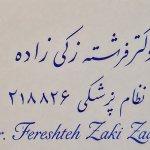 دکتر فرشته زکی زاده
نظام پزشکی ۲۱۸۸۲۶
Fereshteh Zaki